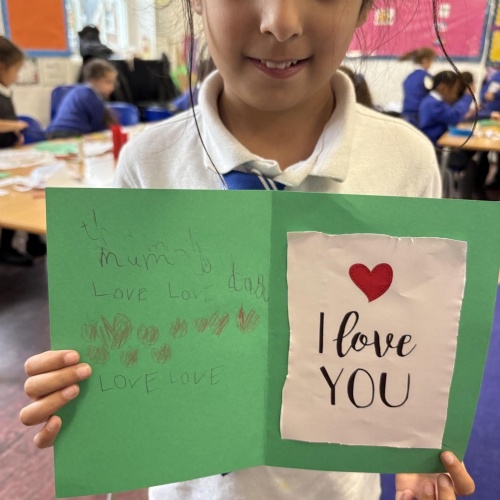 mum
day
LOVE LOVE
LOVE LOVE
I love
YOU